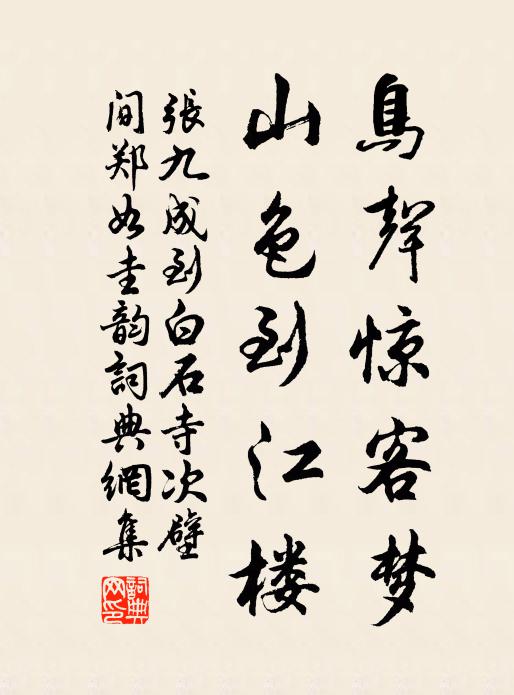 鳥聲惊客梦
山色到江楼
張九成到白石寺次壁
间郑如圭韵詞典網集
詞典網印